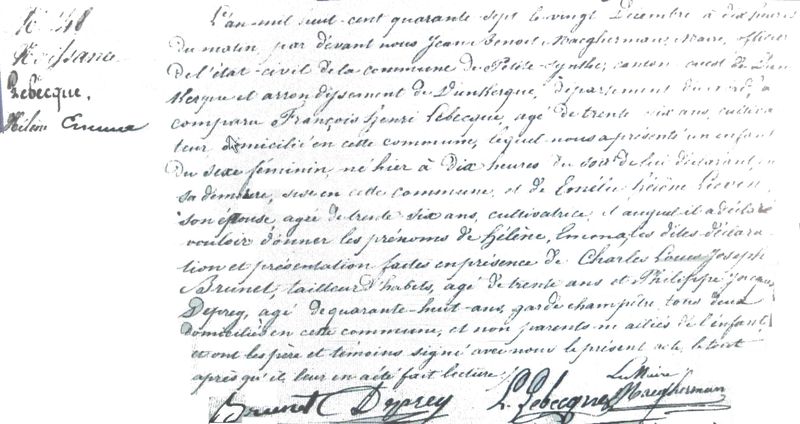 N° 48
Naissance
Lebecque.
Hélène Emma
L'an mil huit cent quarante sept le vingt Décembre à dix heures
du matin, par devant nous Jean Benoit Macgherman, Maire, officier
de l'état-civil de la commune de Petite-Synthe, canton ouest de Dun
kerque et arrondissement de Dunkerque, département du nord, a
comparu François Henri Lebecque, agé de trente six ans, cultiva
teur domicilié en cette commune, lequel nous a présenté un enfant
du sexe féminin, né hier à dix heures du soir de lui déclarant, en
sa demeure, sise en cette commune, et de Emélie Hélène Lieven,
son épouse agée de trente six ans, cultivatrice, et auquel il a déclaré
vouloir donner les prénoms de Hélène, Emma, les dites déclara-
tion et présentation faites en présence de Charles Louis Joseph
Brunet, tailleur d'habits, agé de trente ans et Philippe Jacques
Deprey, agé de quarante-huit ans, garde champêtre, tous deux
domiciliés en cette commune, et non parents ni alliés de l'enfant,
et ont les père et témoins signé avec nous le présent acte, le tout
après qu'il leur en a été fait lecture.
Le Maire
Brunet Deprey L. Lebecque Macgherman